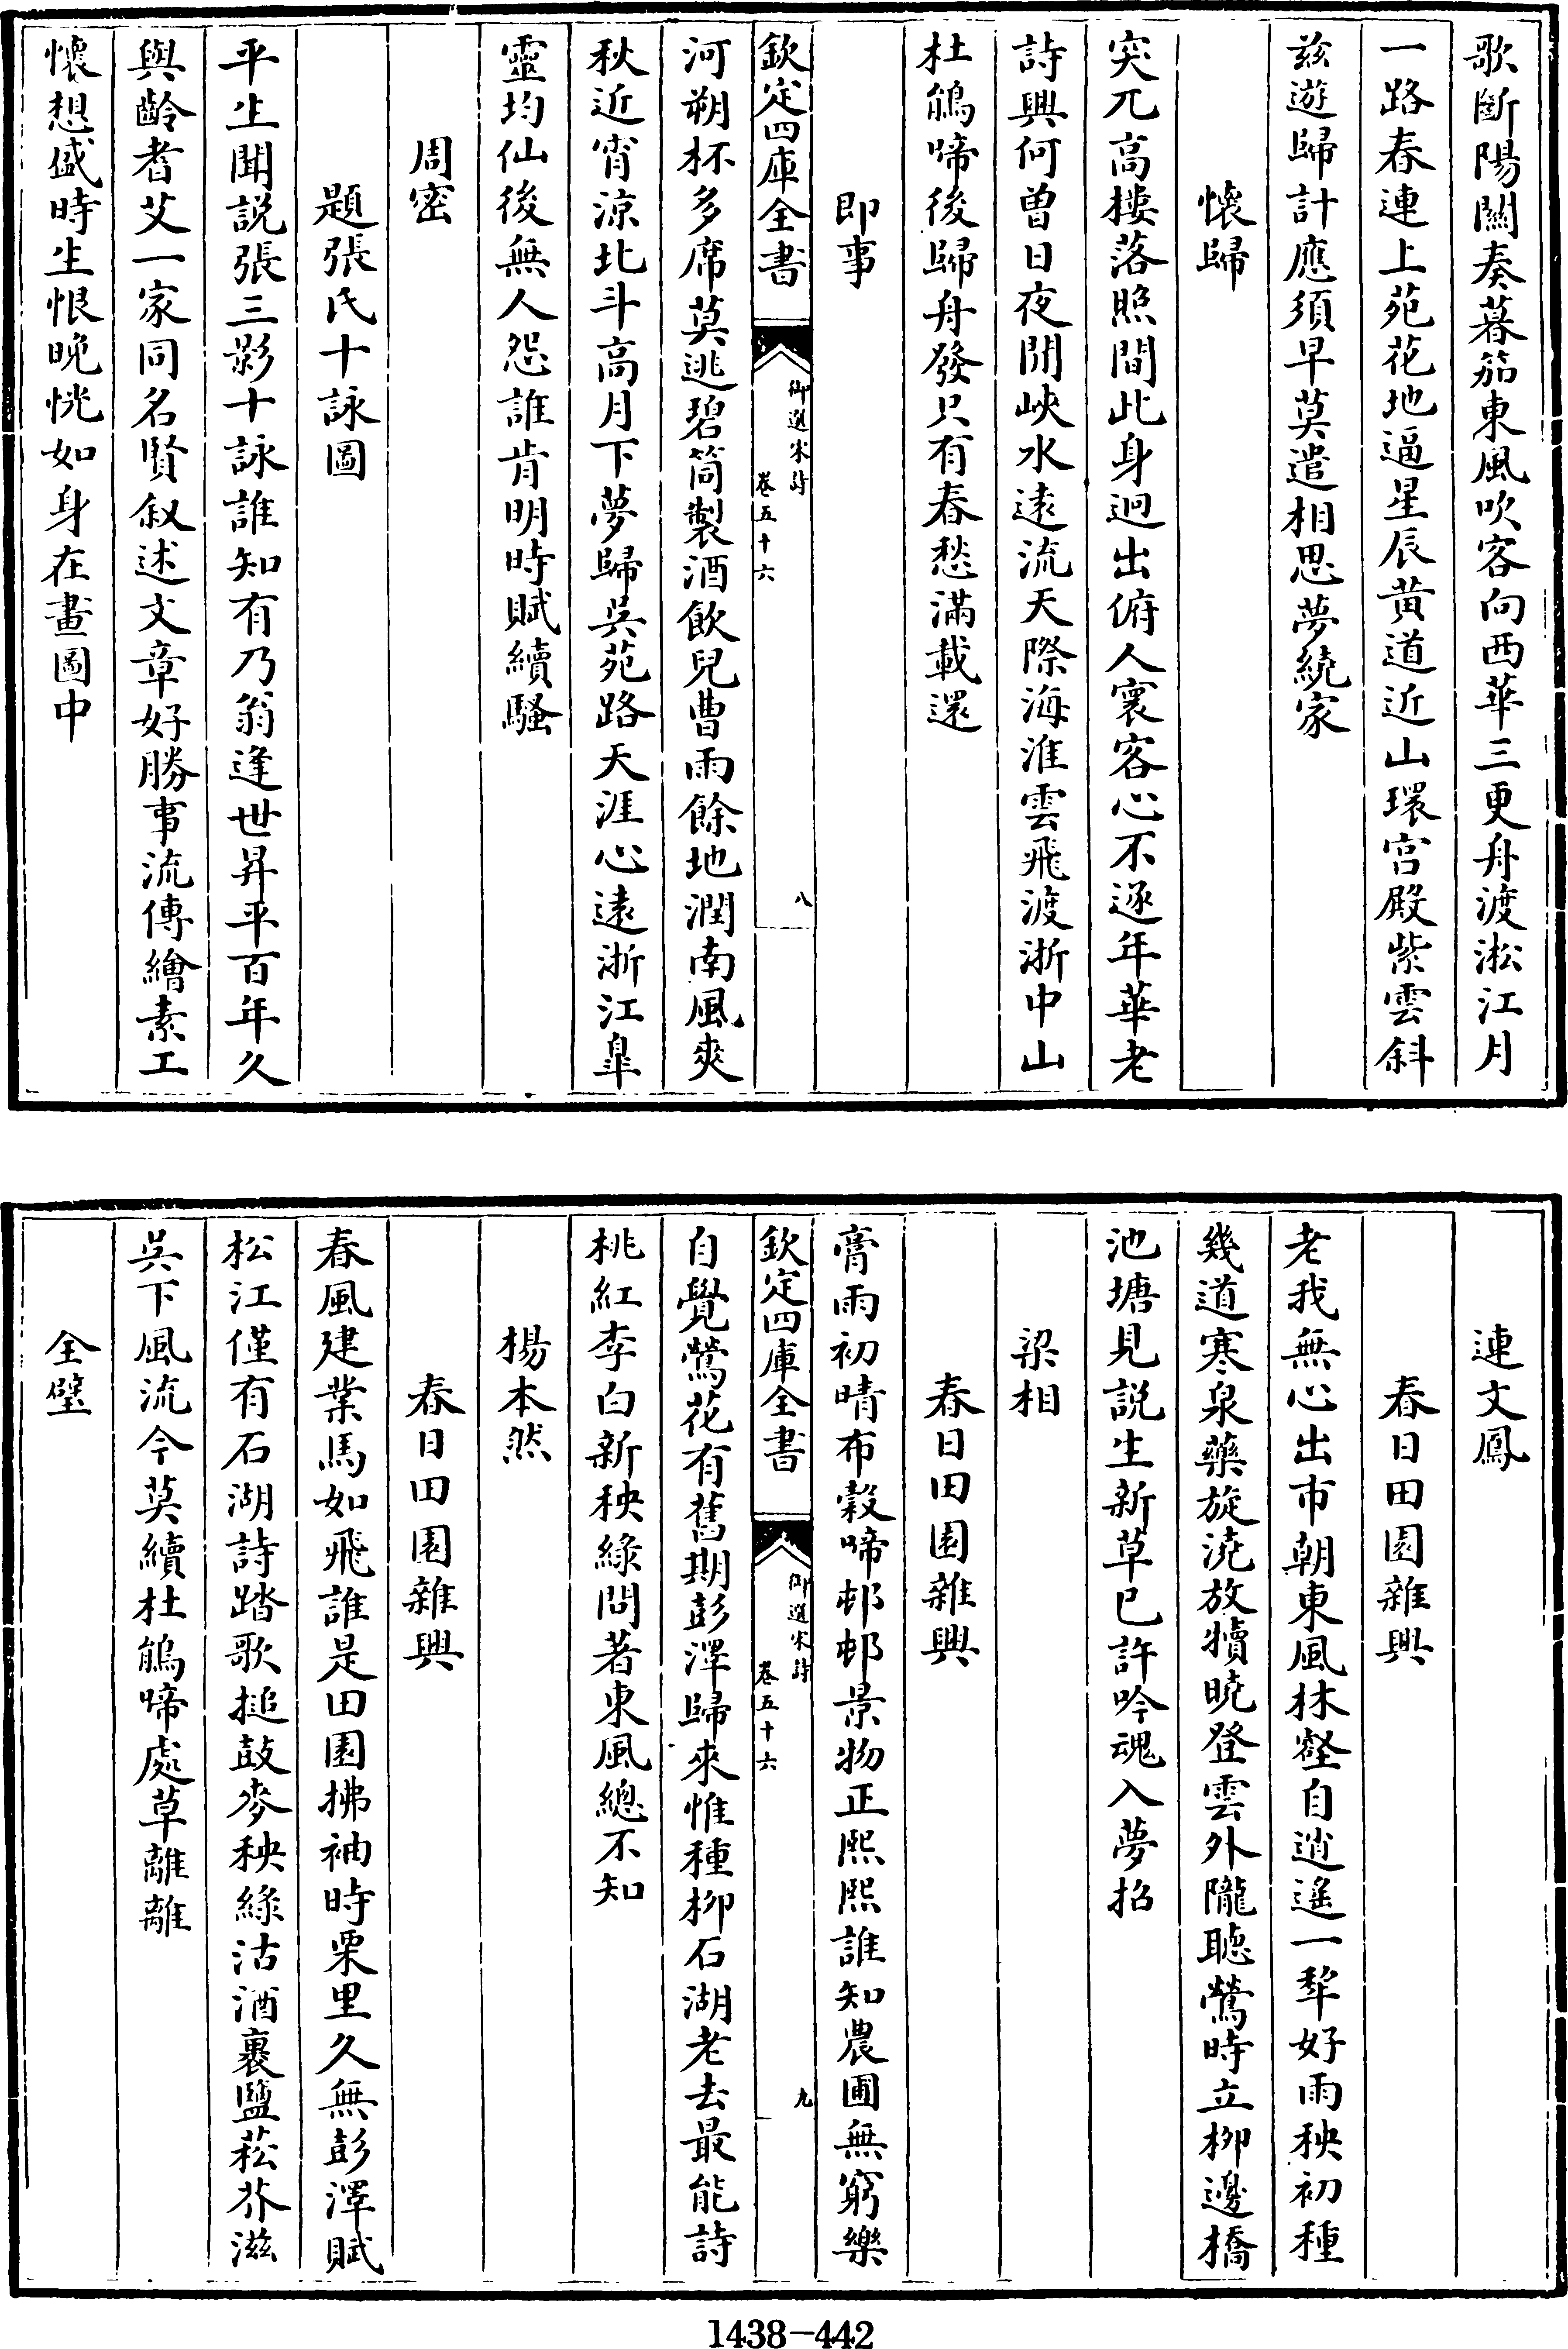 歌斷陽關奏暮笳東風吹客向西華三更舟渡淞江月
一路春連上苑花地逼星辰黃道近山環宮殿紫雲斜
兹遊歸計應須早莫遣相思夢繞家
懷歸
突兀高樓落照間此身迥出俯人寰客心不逐年華老
詩興何曾日夜閒峽水遠流天際海淮雲飛渡浙中山
杜鵑啼後歸舟發只有春愁滿載還
即事
欽定四庫全書
御選宋詩
卷五十六
八
河朔杯多席莫逃碧筒製酒飲兒曹雨餘地潤南風爽
秋近宵涼北斗高月下夢歸吳苑路天涯心遠浙江臯
靈均仙後無人怨誰肯明時賦續騷
周密
題張氏十詠圖
平生聞說張三影十詠誰知有乃翁逢世昇平百年久
與齡耆艾一家同名賢叙述文章好勝事流傳繪素工
懷想盛時生恨晚恍如身在畫圖中
連文鳳
春日田園雜興
老我無心出市朝東風林壑自逍遙一犂好雨秧初種
幾道寒泉藥旋澆放犢曉登雲外隴聽鶯時立柳邊橋
池塘見說生新草已許吟魂入夢招
梁相
春日田園雜興
膏雨初晴布穀啼邨邨景物正熙熙誰知農圃無窮樂
欽定四庫全書
御選宋詩
卷五十六
九
自覺鶯花有舊期彭澤歸來惟種柳石湖老去最能詩
桃紅李白新秧綠問著東風總不知
楊本然
春日田園雜興
春風建業馬如飛誰是田園拂袖時栗里久無彭澤賦
松江僅有石湖詩踏歌搥鼓麥秧綠沽酒裹鹽菘芥滋
吳下風流今莫續杜鵑啼處草離離
全璧
1438-442